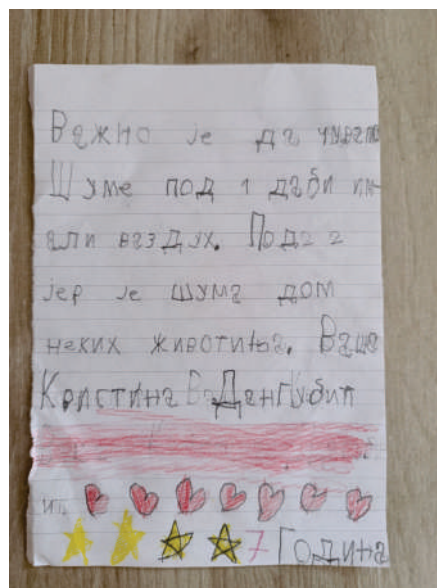 Важно је да чувамо
Шуме под 1 да би им
али ваздух. Под 2
јер је шума дом
неких животиња. Ваша
Кристина
7 Година